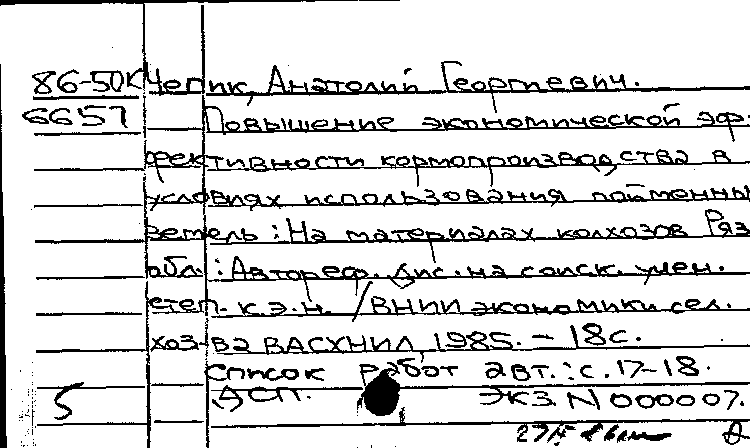 86-50К Чепик, Анатолий Георгиевич.
6657 Повышение экономической эф-
фективности кормопроизводства в
условиях использования пойменны
земель: На материалах колхозов Ряз
обл.: Автореф. дис. на соиск. учен.
степ. к.э.н. / ВНИИ экономики сел.
хоз-ва ВАСХНИЛ, 1985. - 18с.
Список работ авт.: с. 17-18.
5 ДСП. ЭКЗ. N 000007.